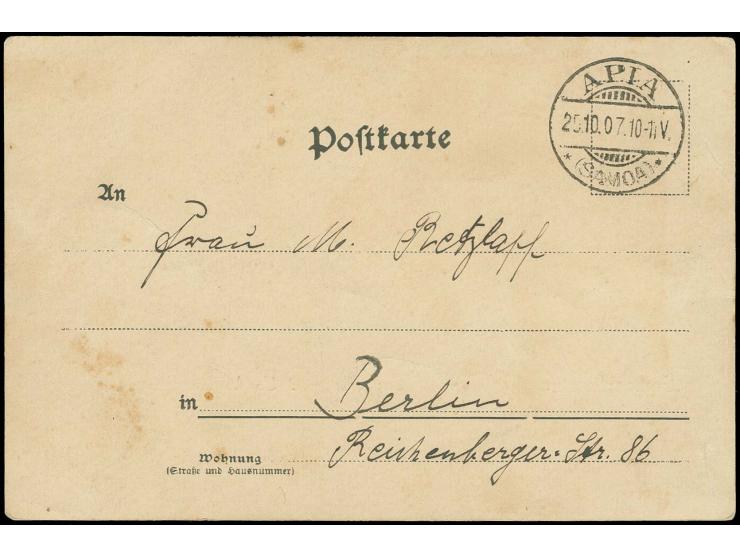 APIA
25.10.07.10-11V.
* (SAMOA) *
Poſtkarte
An
Frau M. Retzlaff
in Berlin
Reichenberger-Str. 86
Wohnung
(Straße und Hausnummer)